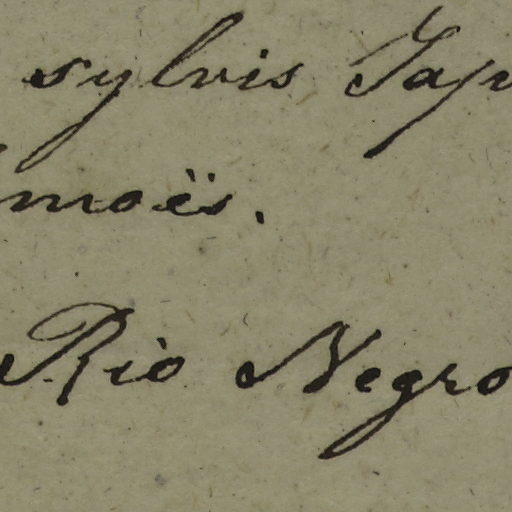 sylvis Japu
moës.
Rio Negro